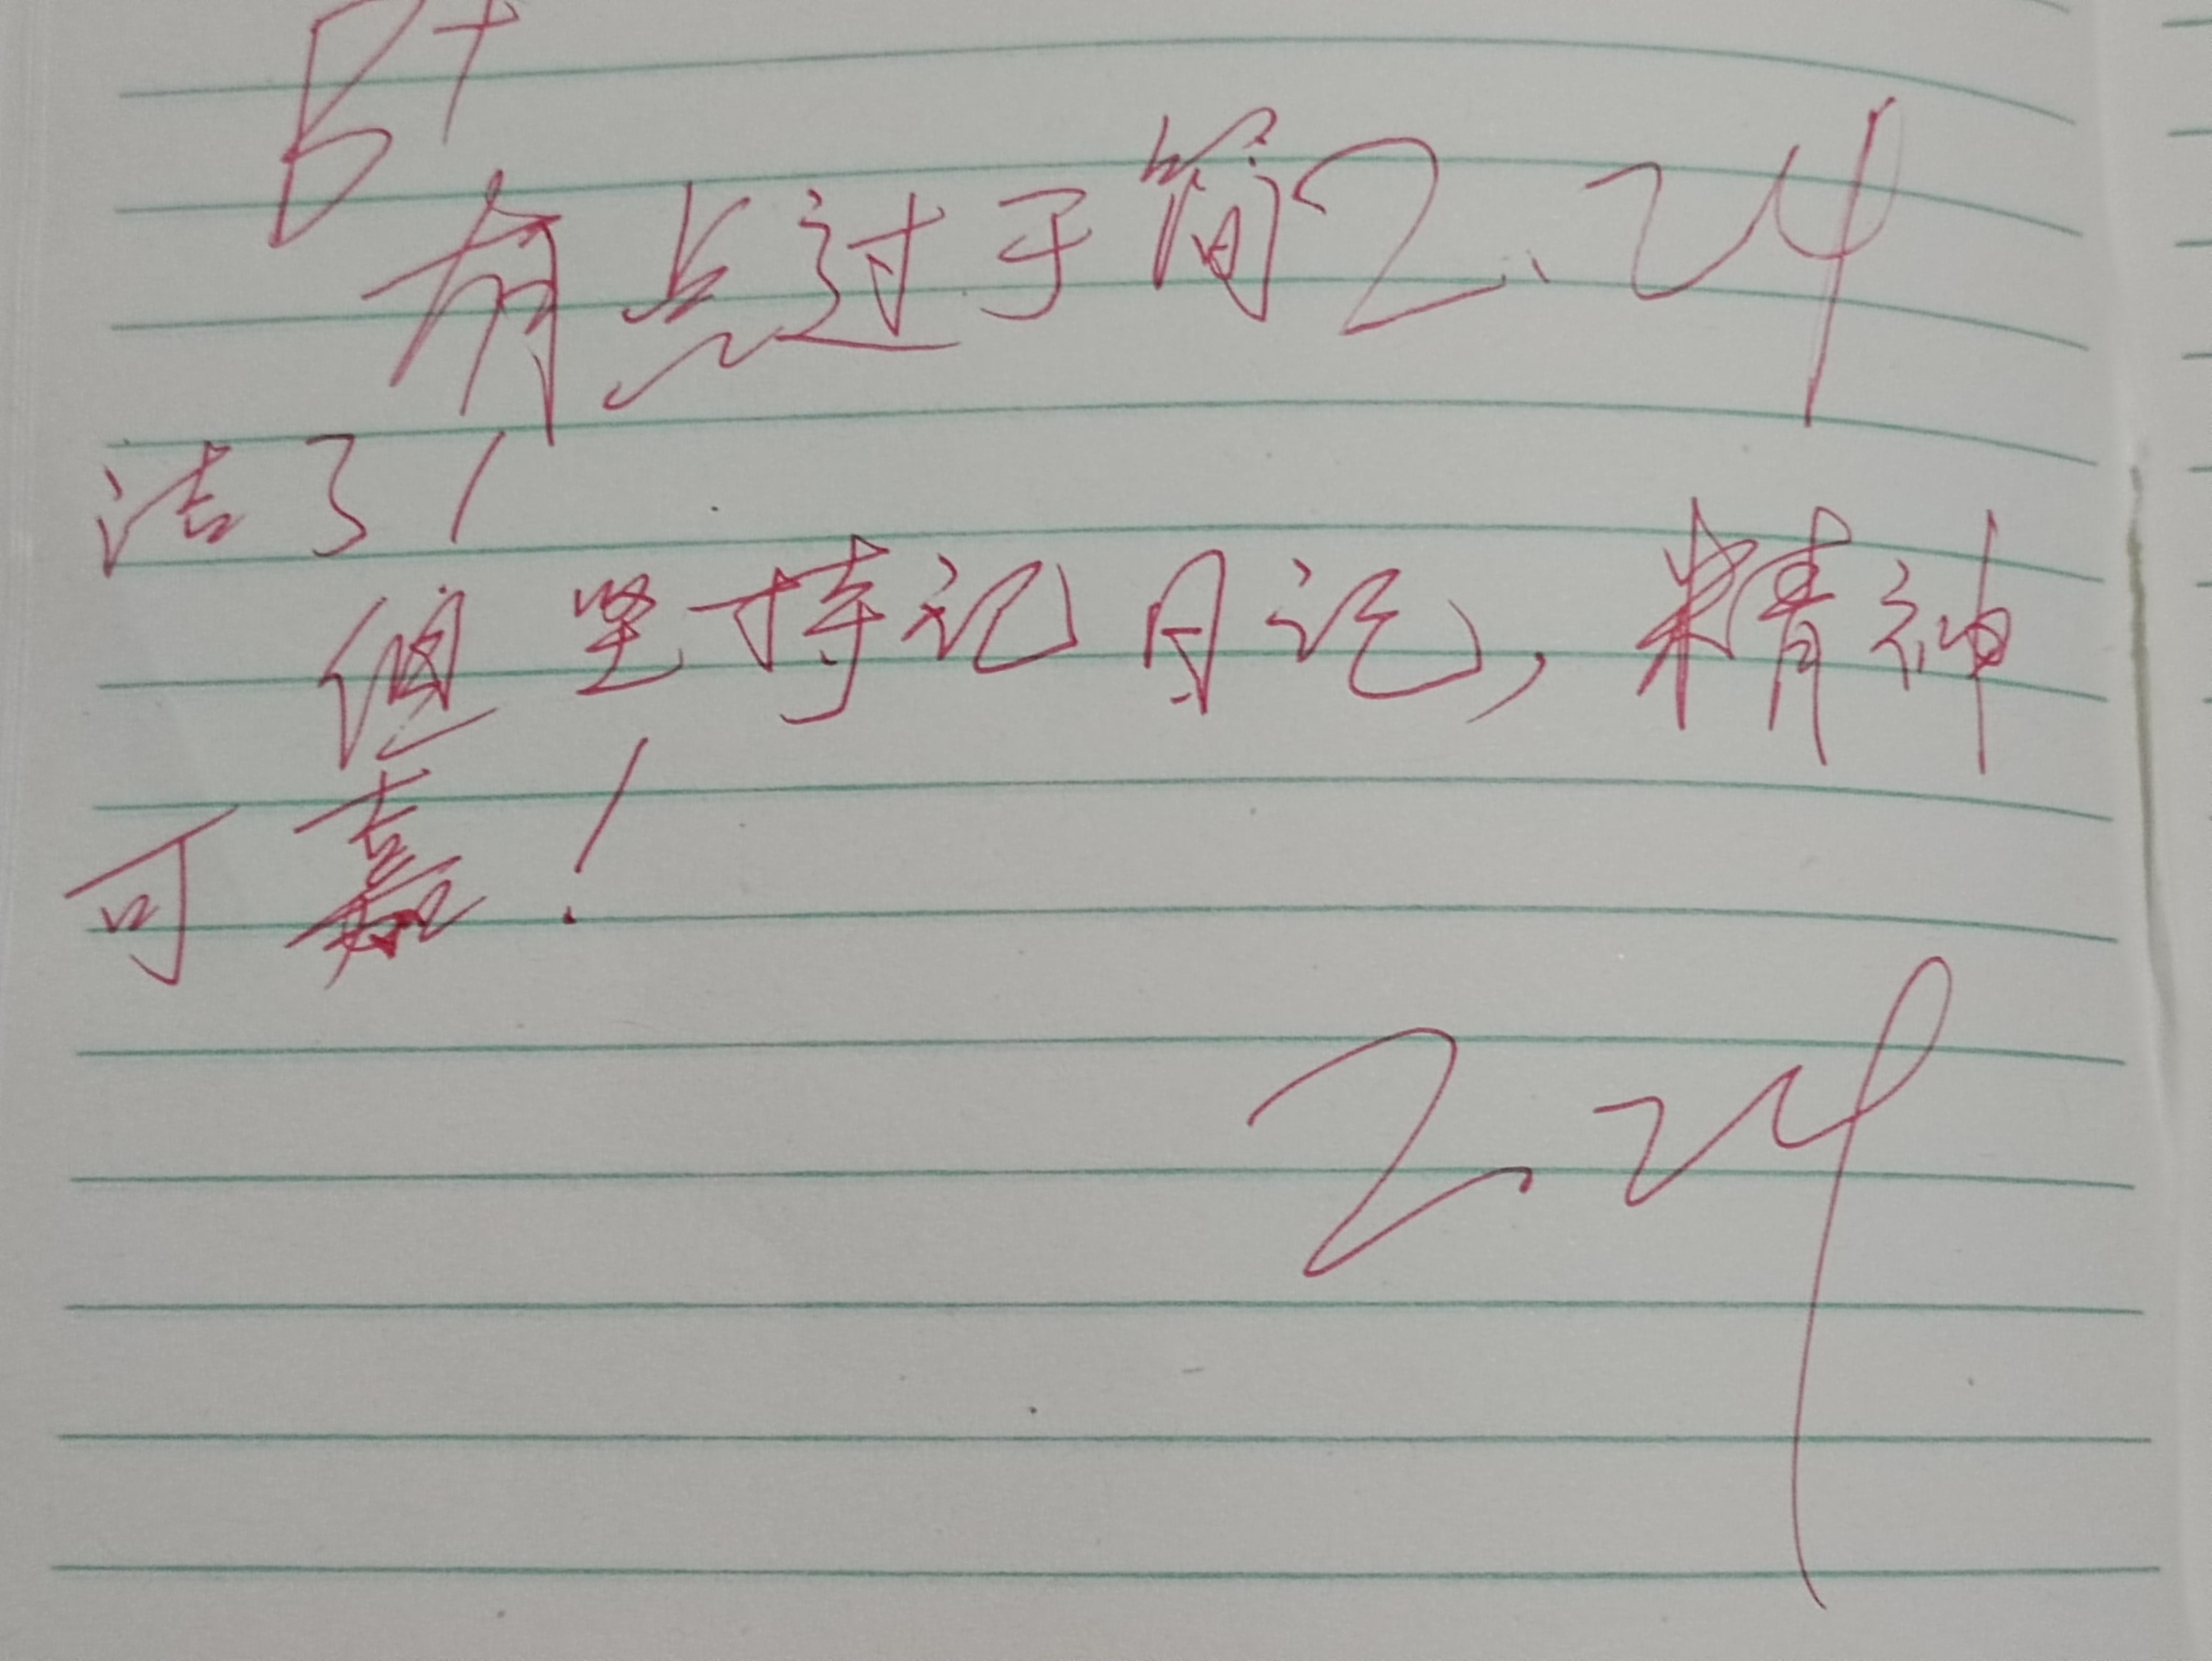 B+
有点过于简 2.24
洁了!
但坚持记日记,精神
可嘉!
2.24